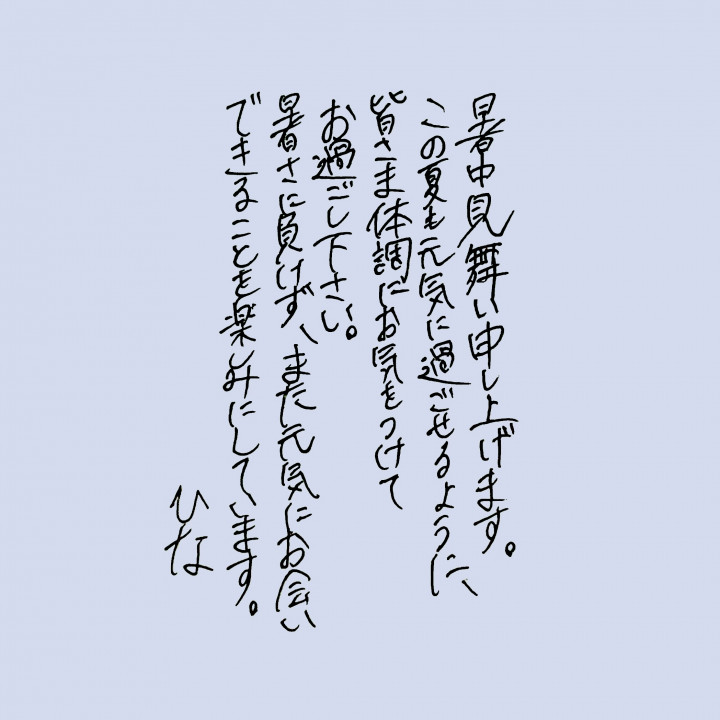 暑中見舞い申し上げます。
この夏も元気に過ごせるように、
皆さま体調にお気をつけて
お過ごし下さい。
暑さに負けず、また元気にお会い
できることを楽しみにしています。
ひな